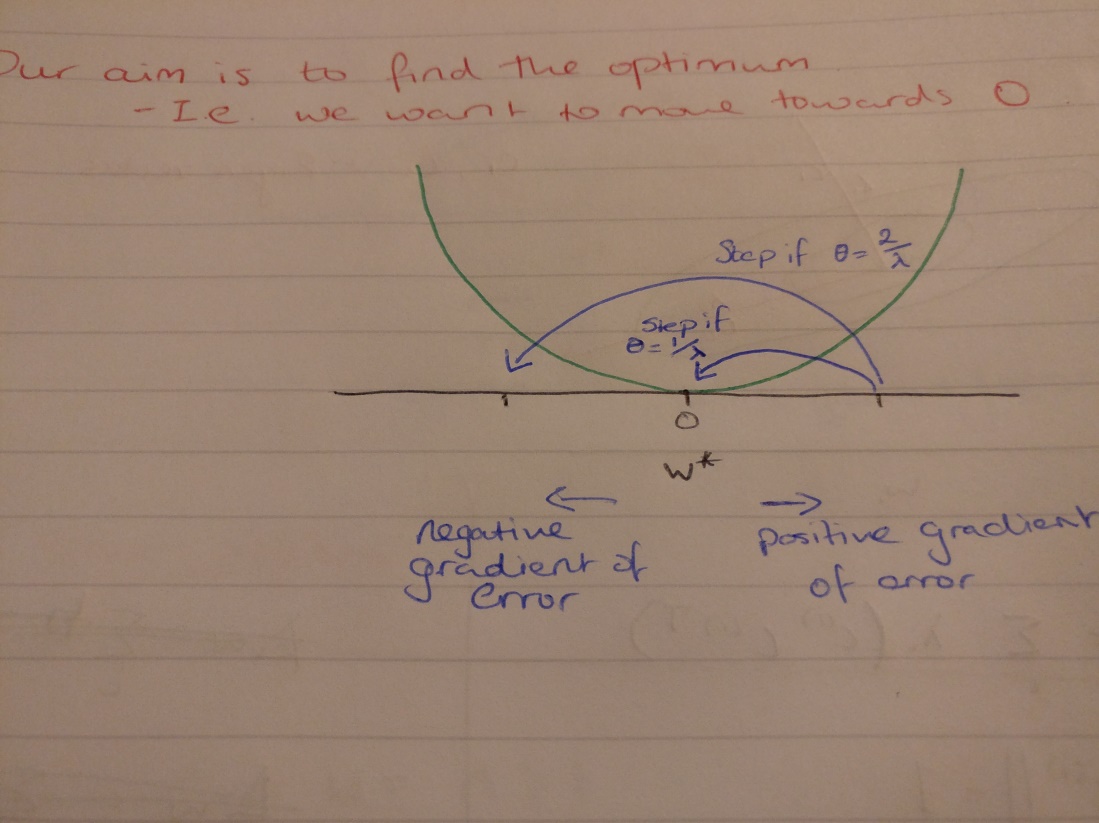 Our aim is to find the optimum
- I.e. we want to move towards 0.
Step if θ = 2/λ
Step if
θ = 1/λ
0
W*
← →
negative
gradient of
error
positive gradient
of error